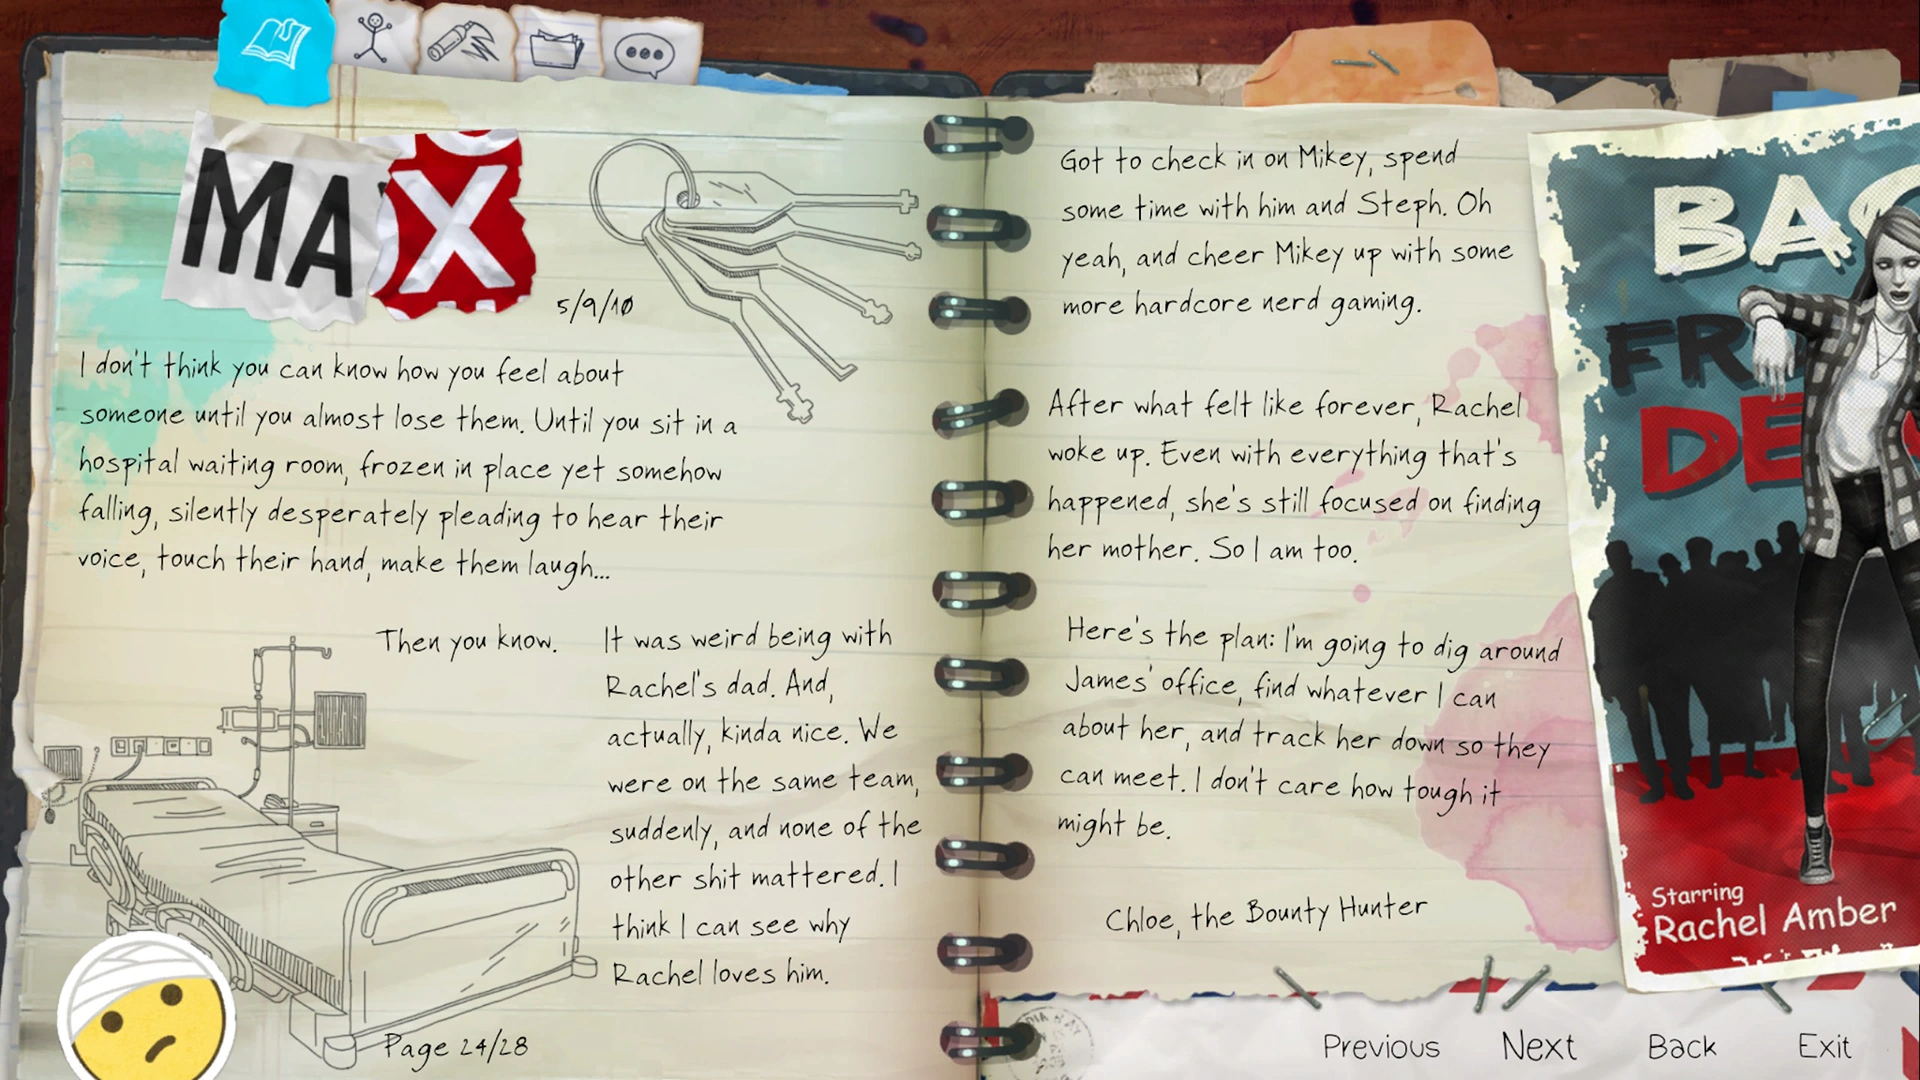 MAX
5/9/10
I don't think you can know how you feel about
someone until you almost lose them. Until you sit in a
hospital waiting room, frozen in place yet somehow
falling, silently desperately pleading to hear their
voice, touch their hand, make them laugh...
Then you know.
It was weird being with
Rachel's dad. And,
actually, kinda nice. We
were on the same team,
suddenly, and none of the
other shit mattered. I
think I can see why
Rachel loves him.
Page 24/28
Got to check in on Mikey, spend
some time with him and Steph. Oh
yeah, and cheer Mikey up with some
more hardcore nerd gaming.
After what felt like forever, Rachel
woke up. Even with everything that's
happened, she's still focused on finding
her mother. So I am too.
Here's the plan: I'm going to dig around
James' office, find whatever I can
about her, and track her down so they
can meet. I don't care how tough it
might be.
Chloe, the Bounty Hunter
Starring
Rachel Amber
Previous
Next
Back
Exit